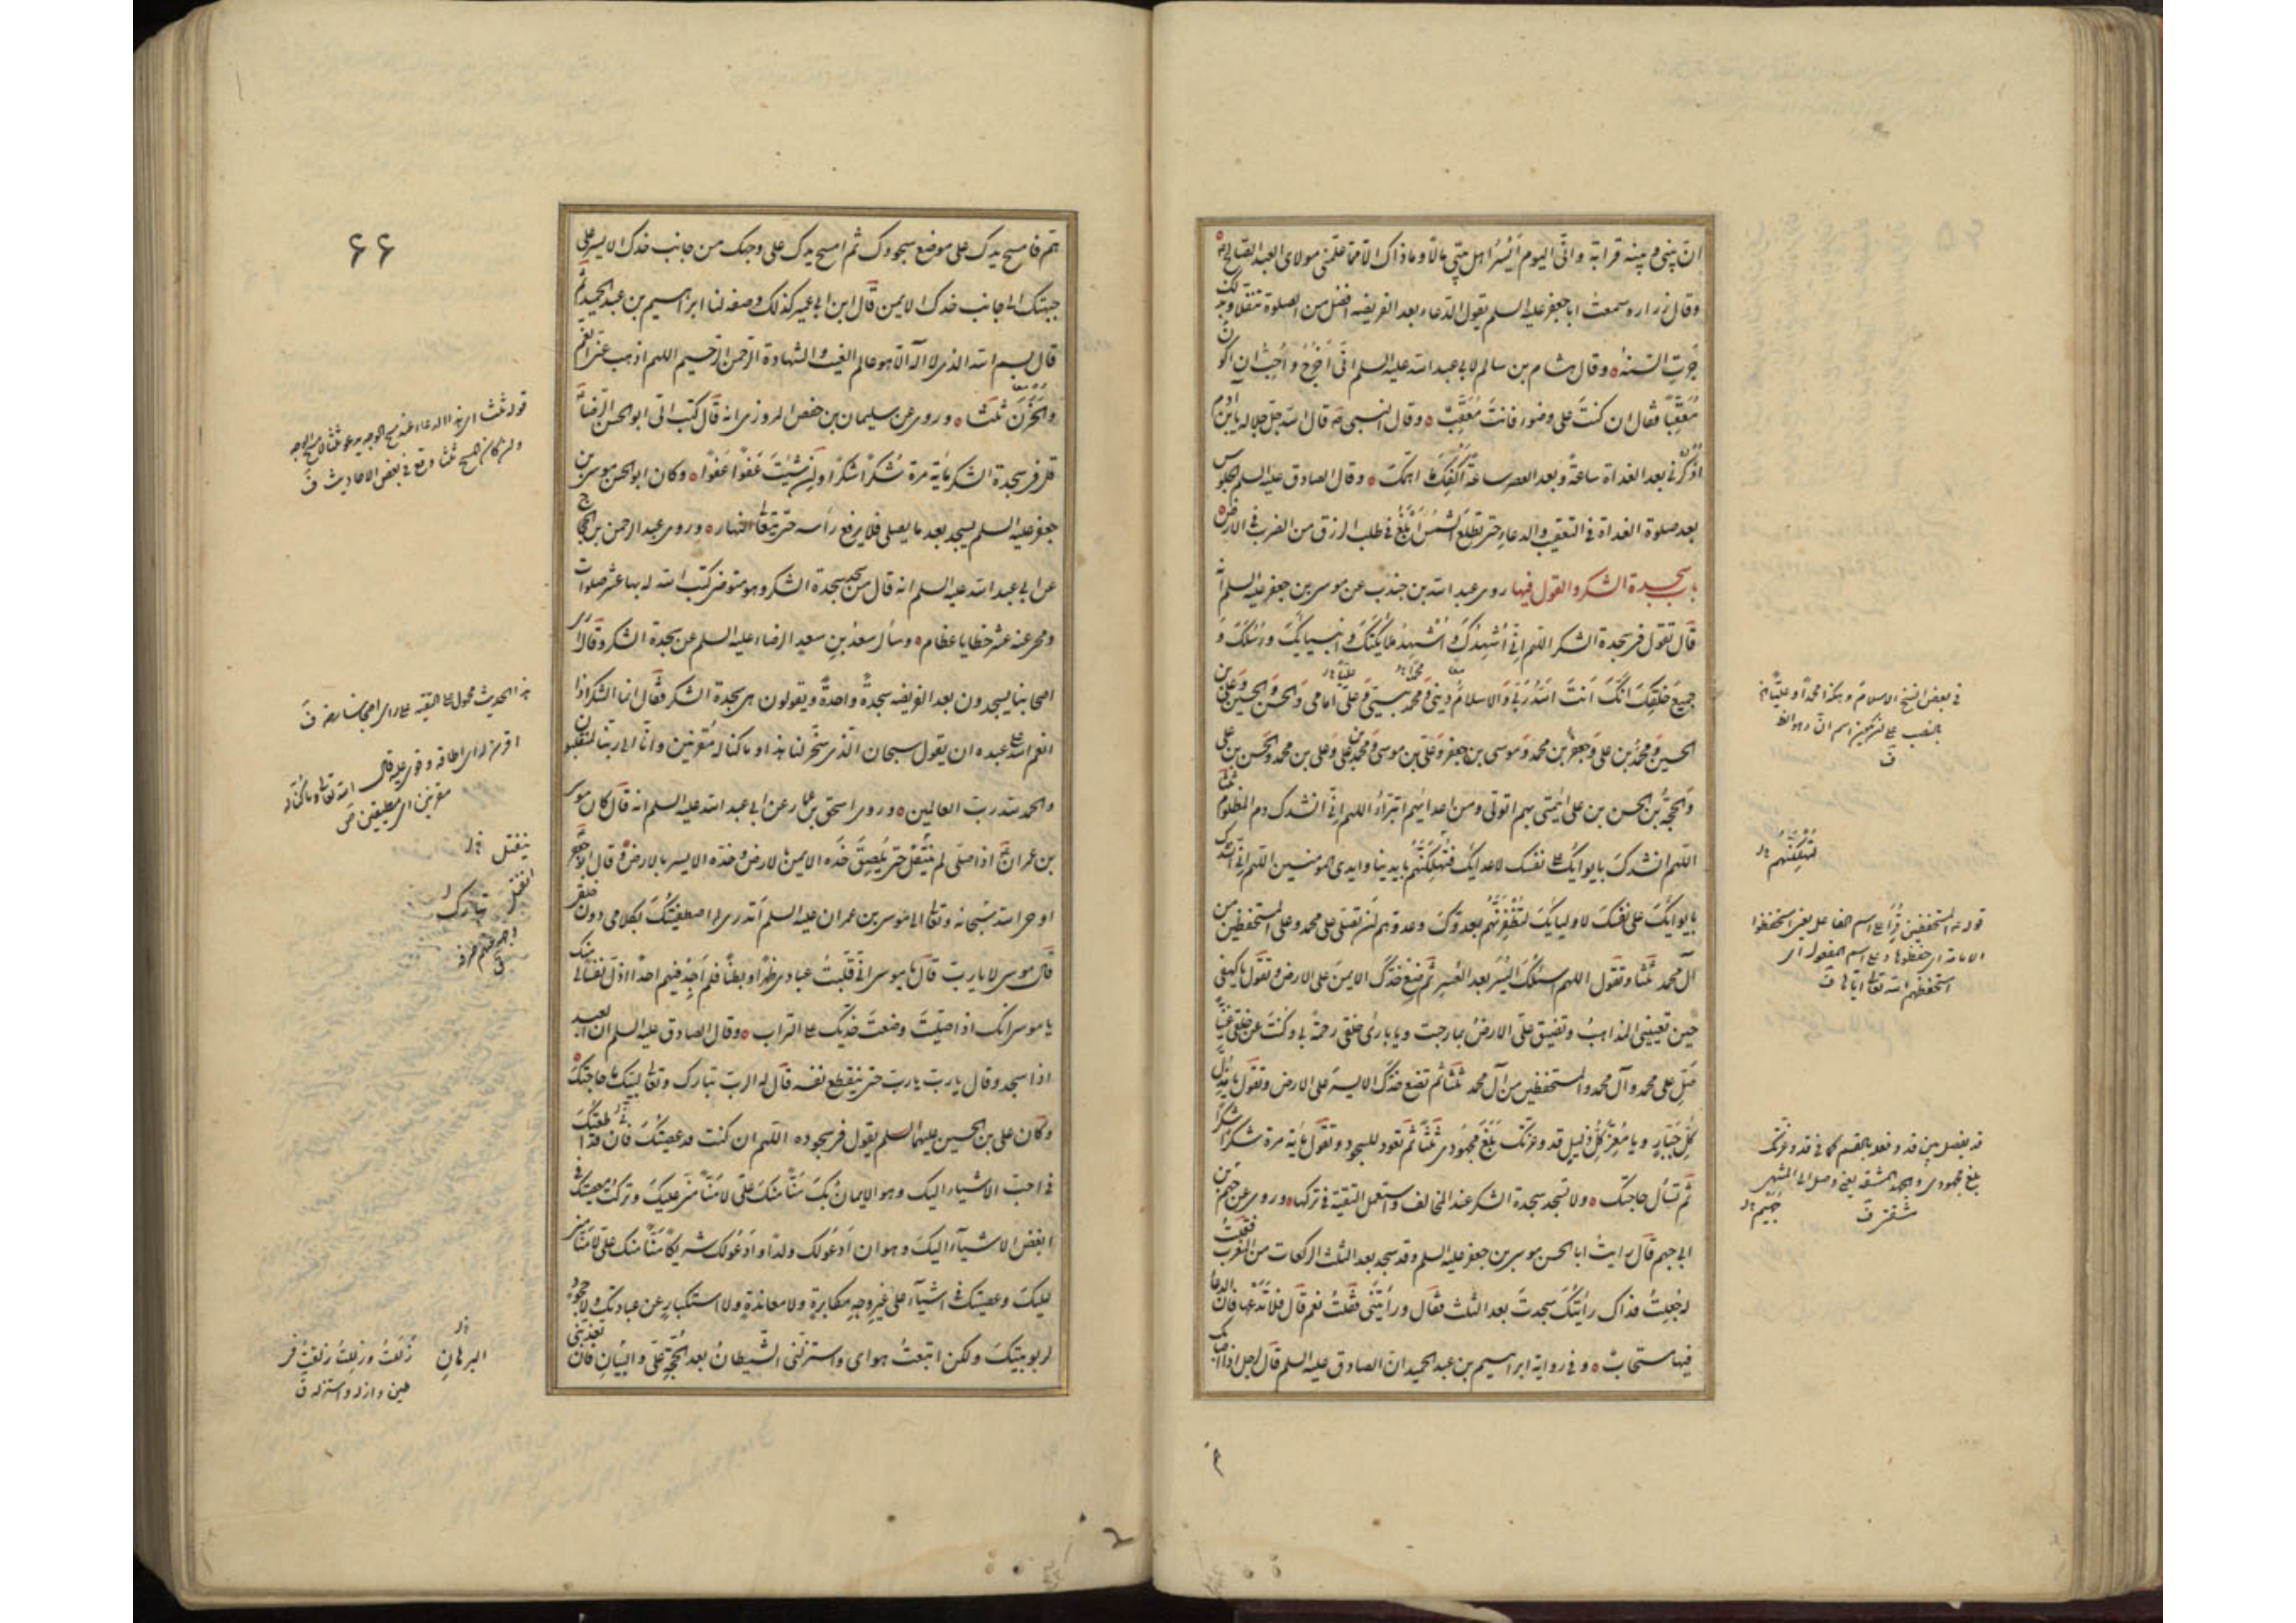 انّ بيني و بينه قرابة و انّي اليوم أيسر اهل بيتي مالا و ما ذاك الا ممّا علّمني مولاى العبد الصالح ع
وقال زراره سمعت ابا جعفر عليه السلم يقول الدعاء بعد الفريضه افضل من الصلوة تنفلا وبذلك
جرت السنة وقال هشام بن سالم لابي عبد الله عليه السلم انّي أخرج و أحبّ ان اكون
معقّبا فقال ان كنت على وضوء فانت معقّب وقال النبي ص قال الله جل جلاله يا بن ادم
اذكرني بعد الغداة ساعة و بعد العصر ساعة أكفك ما اهمّك وقال الصادق عليه السلم الجلوس
بعد صلوة الغداة في التعقيب والدعاء حتى تطلع الشمس أبلغ في طلب الرزق من الضرب في الارض
باب سجدة الشكر والقول فيها روى عبد الله بن جندب عن موسى بن جعفر عليه السلم انه
قال تقول في سجدة الشكر اللهم اني أشهدك و أشهد ملايكتك و انبيائك و رسلك و
جميع خلقك انّك أنت الله ربّي والاسلام ديني و محمد نبيّي و علي امامي والحسن والحسين وعلي بن
الحسين و محمد بن علي و جعفر بن محمد و موسى بن جعفر و علي بن موسى و محمد بن علي و علي بن محمد والحسن بن علي
والحجة بن الحسن بن علي ائمّتي بهم اتولّى ومن اعدائهم اتبرّأ اللهم اني أنشدك دم المظلوم ثلثا
اللهم انشدك بايوائك على نفسك لاعدائك لتهلكنّهم بايدينا وايدى المومنين اللهم اني انشدك
بايوائك على نفسك لاوليائك لتظفرنّهم بعدوك وعدوهم أن تصلي على محمد وعلى المستحفظين من
آل محمد ثلثا وتقول اللهم اني اسئلك اليسر بعد العسر ثم ضع خدّك الايمن على الارض و تقول يا كهفي
حين تعييني المذاهب و تضيق عليّ الارض بما رحبت و يا بارئ خلقي رحمة بي و كنت عن خلقي غنيّا
صلّ على محمد و آل محمد والمستحفظين من آل محمد ثلثا ثم تضع خدّك الايسر على الارض وتقول يا مذلّ
كلّ جبّار و يا معزّ كلّ ذليل قد وعزّتك بلغ مجهودي ثلثا ثم تعود للسجود و تقول مائة مرة شكرا شكرا
ثم تسأل حاجتك ولا تسجد سجدة الشكر عند المخالف واستعمل التقية في تركها وروى عن جهم بن
ابي جهم قال رايت ابا الحسن موسى بن جعفر عليه السلم وقد سجد بعد الثلث الركعات من المغرب فقلت
له جعلت فداك رأيتك سجدت بعد الثلث فقال ورأيتني فقلت نعم قال فلا تدعها فان الدعاء
فيها مستجاب و في رواية ابراهيم بن عبد الحميد انّ الصادق عليه السلم قال لرجل اذا اصابك
في بعض النسخ الاسلام و هكذا محمدا و عليّا
بالنصب
ف
لتهلكنّهم
قوله المستحفظين قرئ على اسم الفاعل يعني استحفظوا
الامانة اى حفظوها و على اسم المفعول اى
استحفظهم الله تعالى اياها ف
قد يفصل بين قد و فعله بالقسم كما في قد وعزتك
بلغ مجهودي
جهيم
٦٦
همّ فامسح يدك على موضع سجودك ثم امسح يدك على وجهك من جانب خدك الايسر على
جبهتك الى جانب خدك الايمن قال ابن ابي عمير كذلك وصفه لنا ابراهيم بن عبد الحميد ثم
قال بسم الله الذى لا اله الا هو عالم الغيب والشهادة الرحمن الرحيم اللهم اذهب عني الغم
والحزن ثلثا وروى عن سليمان بن حفص المروزى انه قال كتب اليّ ابو الحسن الرضا ع
قل في سجدة الشكر مائة مرة شكرا شكرا وإن شئت عفوا عفوا وكان ابو الحسن موسى بن
جعفر عليه السلم يسجد بعد ما يصلى فلا يرفع رأسه حتى يتعالى النهار وروى عبد الرحمن بن الحجاج
عن ابي عبد الله عليه السلم انه قال من سجد سجدة الشكر وهو متوضئ كتب الله له بها عشر صلوات
ومحى عنه عشر خطايا عظام وسأل سعد بن سعيد الرضا عليه السلم عن سجدة الشكر وقال ارى
اصحابنا يسجدون بعد الفريضه سجدة واحدة و يقولون هى سجدة الشكر فقال انما الشكر اذا
انعم الله على عبده ان يقول سبحان الذى سخّر لنا هذا و ما كنا له مقرنين و انا الى ربنا لمنقلبون
والحمد لله رب العالمين وروى اسحق بن عمار عن ابي عبد الله عليه السلم انه قال كان موسى
بن عمران ع اذا صلّى لم ينفتل حتى يلصق خدّه الايمن بالارض و خدّه الايسر بالارض و قال ابو جعفر ع
اوحى الله سبحانه وتعالى الى موسى بن عمران عليه السلم أتدرى لم اصطفيتك بكلامي دون خلقي
قال موسى لا يا رب قال يا موسى انّي قلبت عبادى ظهرا و بطنا فلم أجد فيهم احدا اذلّ نفسا لي منك
يا موسى انك اذا صلّيت وضعت خدّيك على التراب وقال الصادق عليه السلم ان العبد
اذا سجد وقال يا رب يا رب حتى ينقطع نفسه قال له الرب تبارك وتعالى لبيك ما حاجتك
وكان علي بن الحسين عليهما السلم يقول في سجوده اللهم ان كنت قد عصيتك فاني قد اطعتك
في احب الاشياء اليك وهو الايمان بك منّا منك عليّ لا منّا مني عليك وتركت معصيتك في
ابغض الاشياء اليك و هو ان أدعو لك ولدا او أدعو لك شريكا منّا منك عليّ لا منّا مني
عليك وعصيتك في اشياء على غير وجه مكابرة ولا معاندة ولا استكبار عن عبادتك ولا جحود
لربوبيتك ولكن اتبعت هواى واستزلّني الشيطان بعد الحجة عليّ والبيان فان تعذبني
هذا الحديث محمول على التقيه
ينفتل
تبارك
البرهان